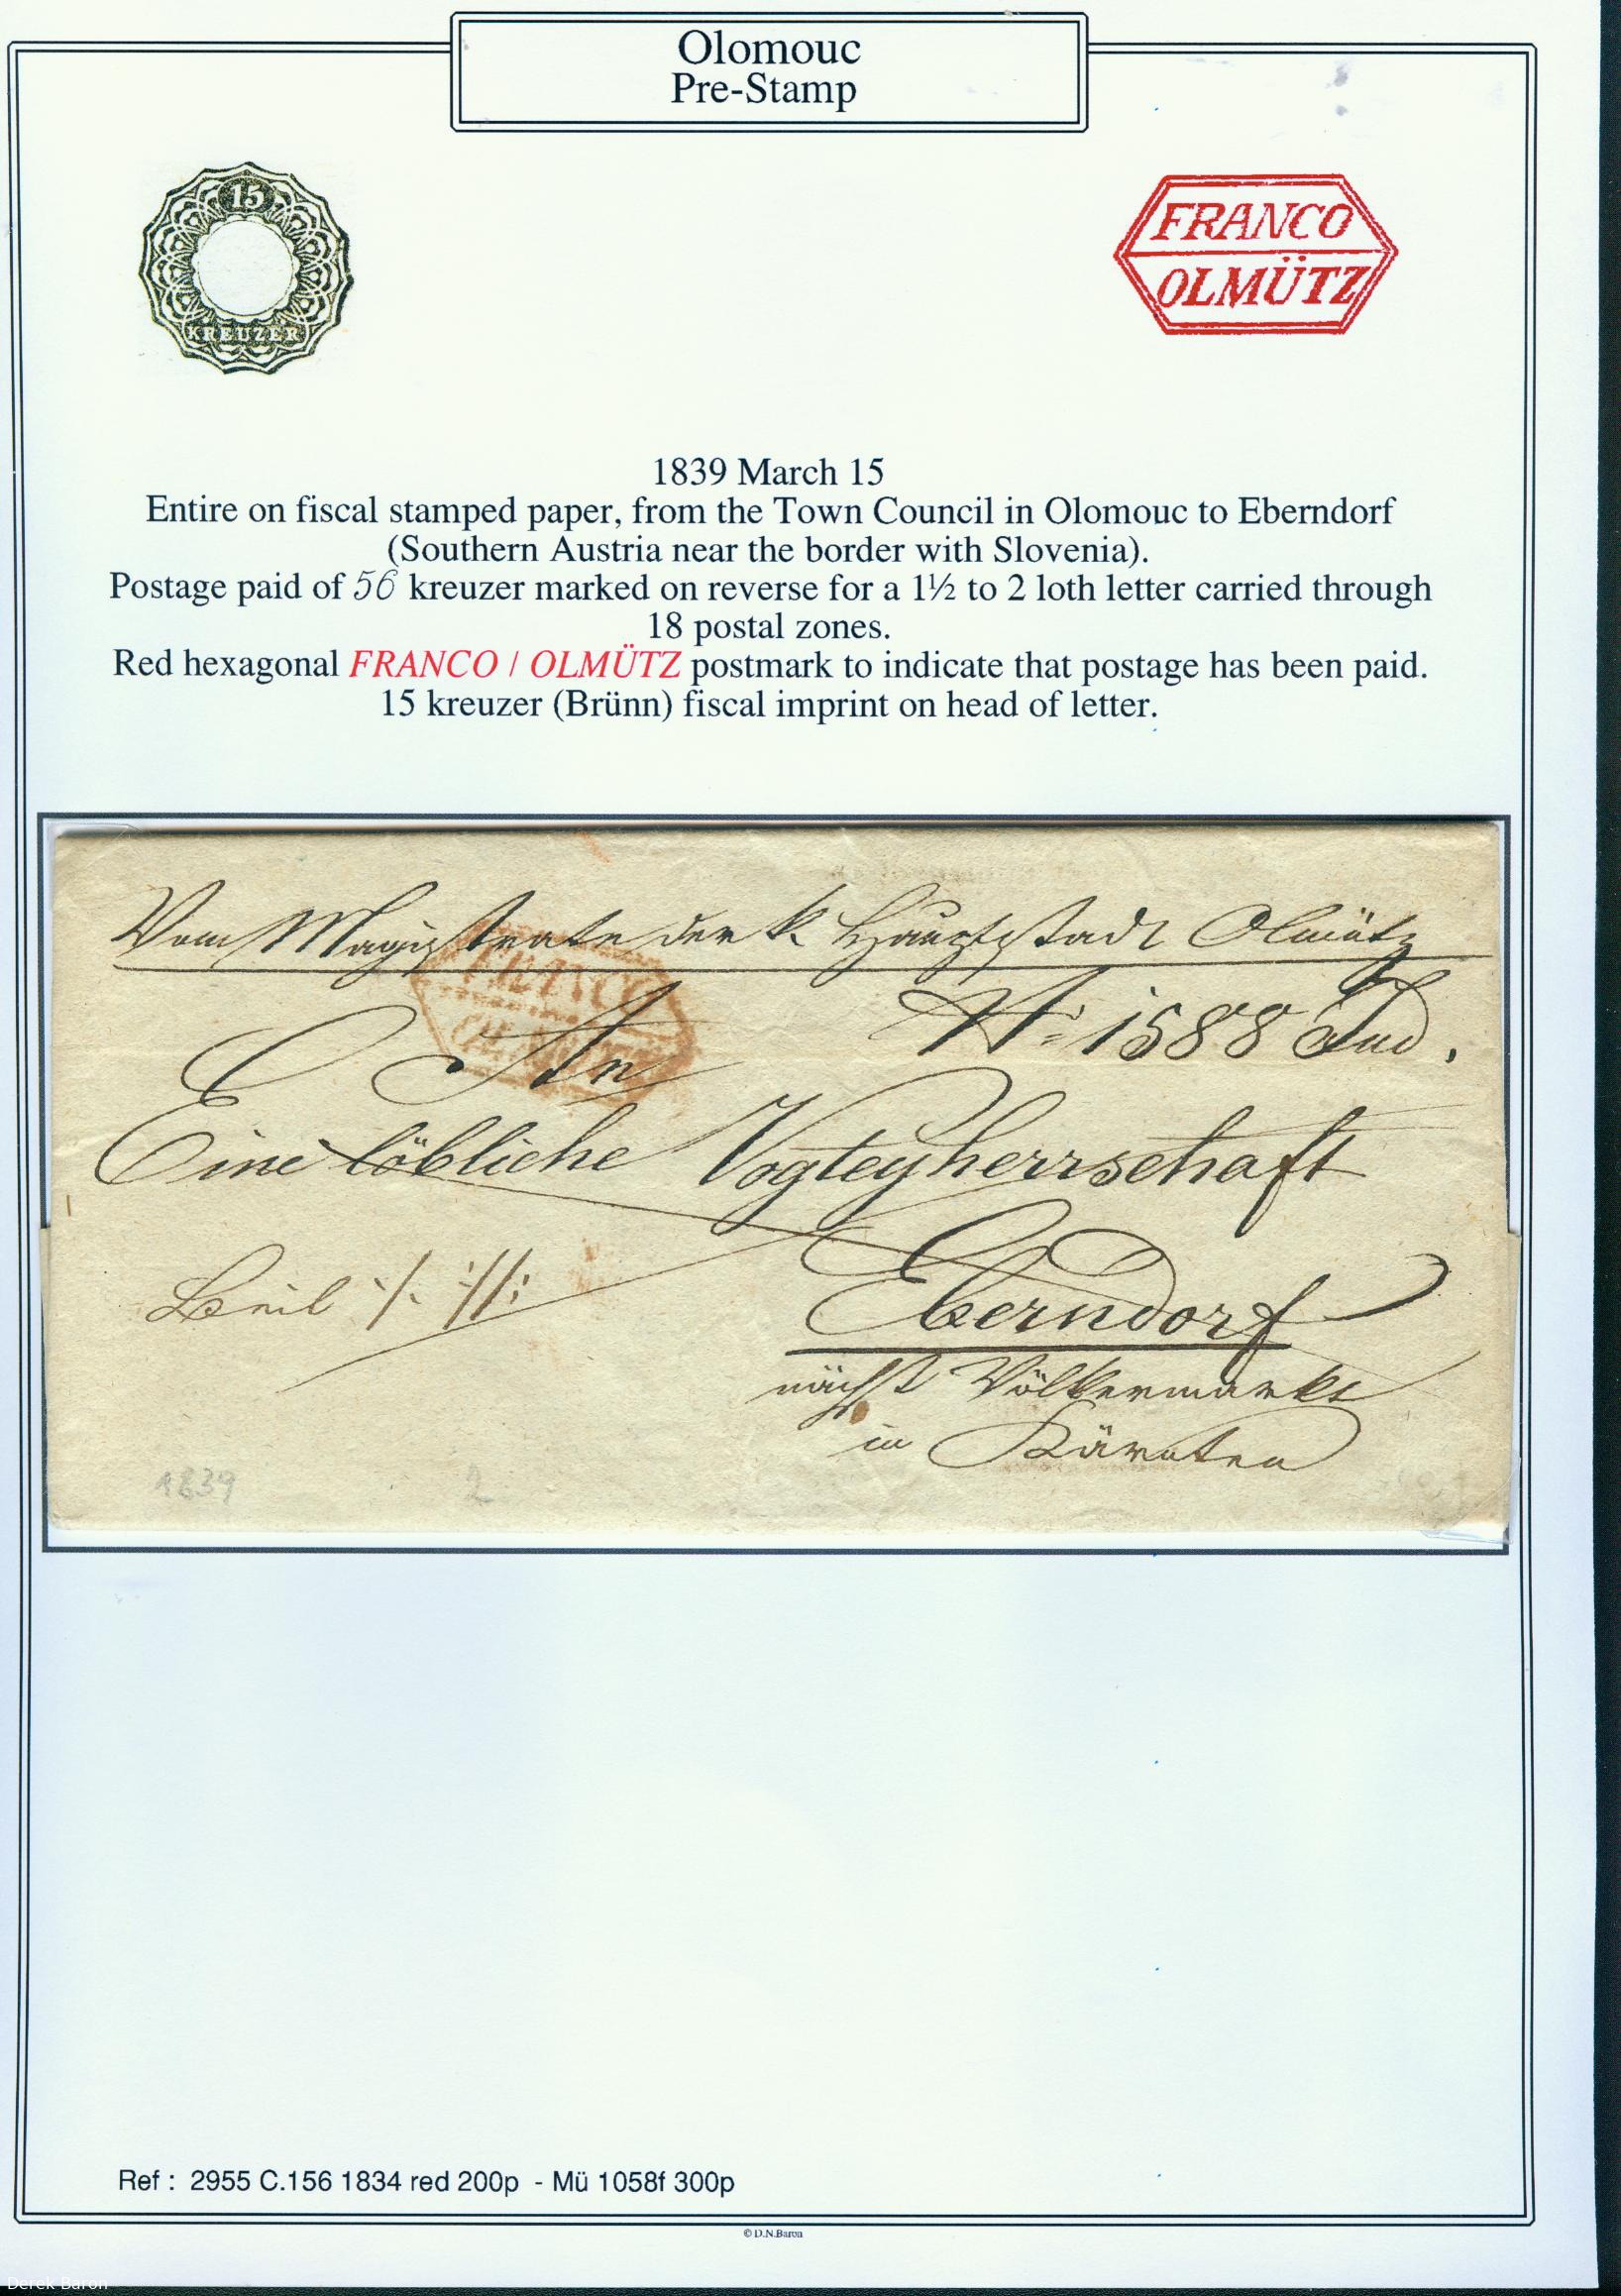 Olomouc
Pre-Stamp
15
KREUZER
FRANCO
OLMÜTZ
1839 March 15
Entire on fiscal stamped paper, from the Town Council in Olomouc to Eberndorf
(Southern Austria near the border with Slovenia).
Postage paid of 56 kreuzer marked on reverse for a 1½ to 2 loth letter carried through
18 postal zones.
Red hexagonal FRANCO / OLMÜTZ postmark to indicate that postage has been paid.
15 kreuzer (Brünn) fiscal imprint on head of letter.
Vom Magistrate der k. Hauptstadt Olmütz
FRANCO
OLMÜTZ
N: 1588 Jud.
An
Eine löbliche Vogteyherrschaft
Beil ·/. ://:
Eberndorf
nächst Völkermarkt
in Kärnten
1839 2
Ref : 2955 C.156 1834 red 200p - Mü 1058f 300p
© D.N.Baron
Derek Baron